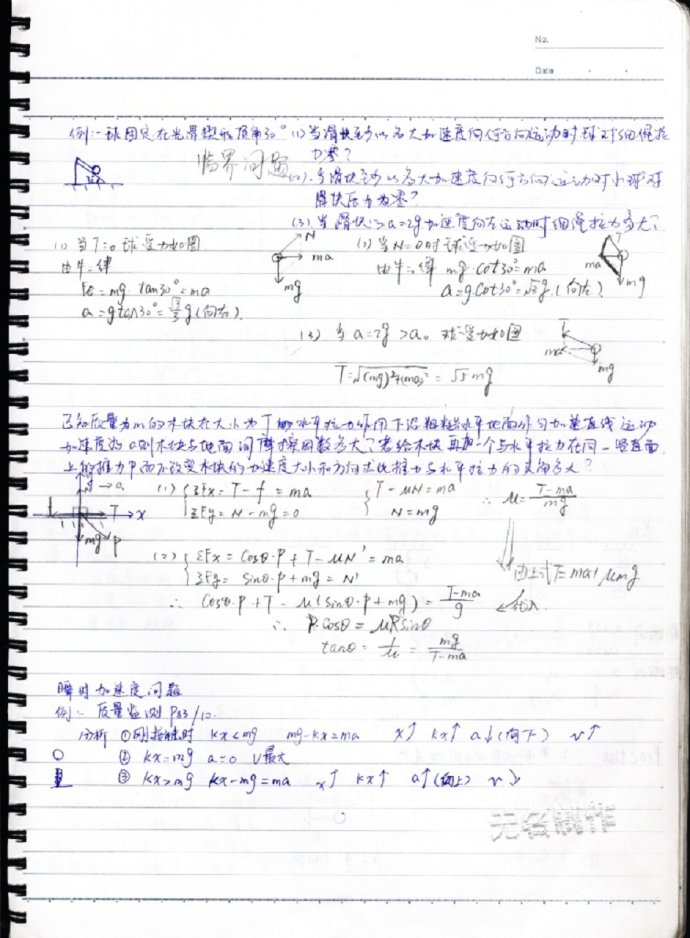 No.
Date
例:一球固定在光滑楔形顶角30° (1)当滑块至少以多大加速度向何方向运动时球对细绳拉
力零?
临界问题 (2).当滑块至少以多大加速度向何方向运动时小球对
滑块压力为零?
(3)当滑块以a=2g加速度向左运动时细绳拉力多大?
(1)当T=0球受力如图
由牛二律
F合=mg·tan30°=ma
a=gtan30°=√3/3 g(向右).
N
ma
mg
(2)当N=0时球受力如图
由牛二律 mg·cot30°=ma
a=g.cot30°=√3g.(向左).
T
ma
mg
(3) 当 a=2g>a。 球受力如图
T=√(mg)²+(ma)² = √5 mg
T
ma
mg
已知质量为m的木块在大小为T的水平拉力作用下沿粗糙水平地面作匀加速直线运动
加速度为a则木块与地面间摩擦因数多大?若给木块再加一个与水平拉力在同一竖直面
上的推力P而不改变木块的加速度大小和方向求此推力与水平拉力的夹角多大?
N →a
f T x
mg P
(1) { ΣFx=T-f=ma { T-μN=ma ∴ μ=T-ma/mg
ΣFy=N-mg=0 N=mg
(2) { ΣFx=cosθ·P+T-μN'=ma 由上式T=ma+μmg
ΣFy=sinθ·P+mg=N'
∴ cosθ·P+T-μ(sinθ·P+mg)=T-ma/g 代入
∴ P.cosθ=μPsinθ
tanθ=1/μ=mg/T-ma
瞬时加速度问题
例:质量监测 P83/10.
分析 ①刚接触时 kx<mg mg-kx=ma x↑ kx↑ a↓(向下) v↑
② kx=mg a=0 V最大
③ kx>mg kx-mg=ma x↑ kx↑ a↑(向上) v↓
无名制作